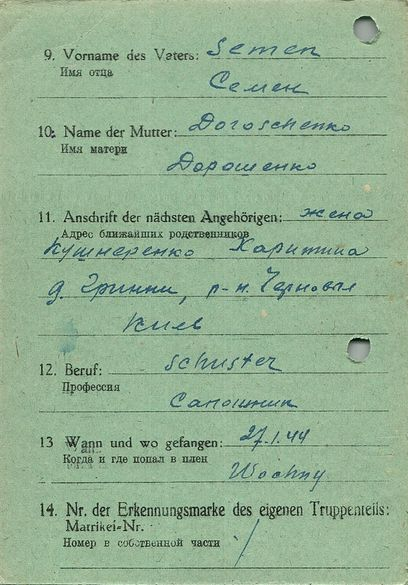 9. Vorname des Vaters: Semen
Имя отца
Семен
10. Name der Mutter: Doroschenko
Имя матери
Дорошенко
11. Anschrift der nächsten Angehörigen: жена
Адрес ближайших родственников
Кушнеренко Харитина
д. Гринки, р-н
Киев
12. Beruf: Schuster
Профессия
Сапошник
13 Wann und wo gefangen: 27.1.44
Когда и где попал в плен
14. Nr. der Erkennungsmarke des eigenen Truppenteils:
Matrikel-Nr. /
Номер в собственной части